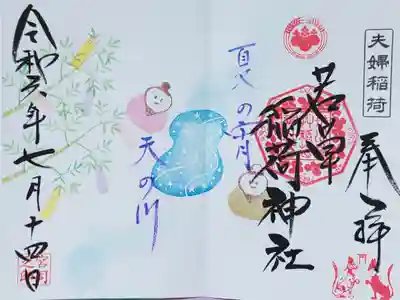 夫婦稲荷
奉拝
若草
稲荷神社
天の川
令和六年七月十四日